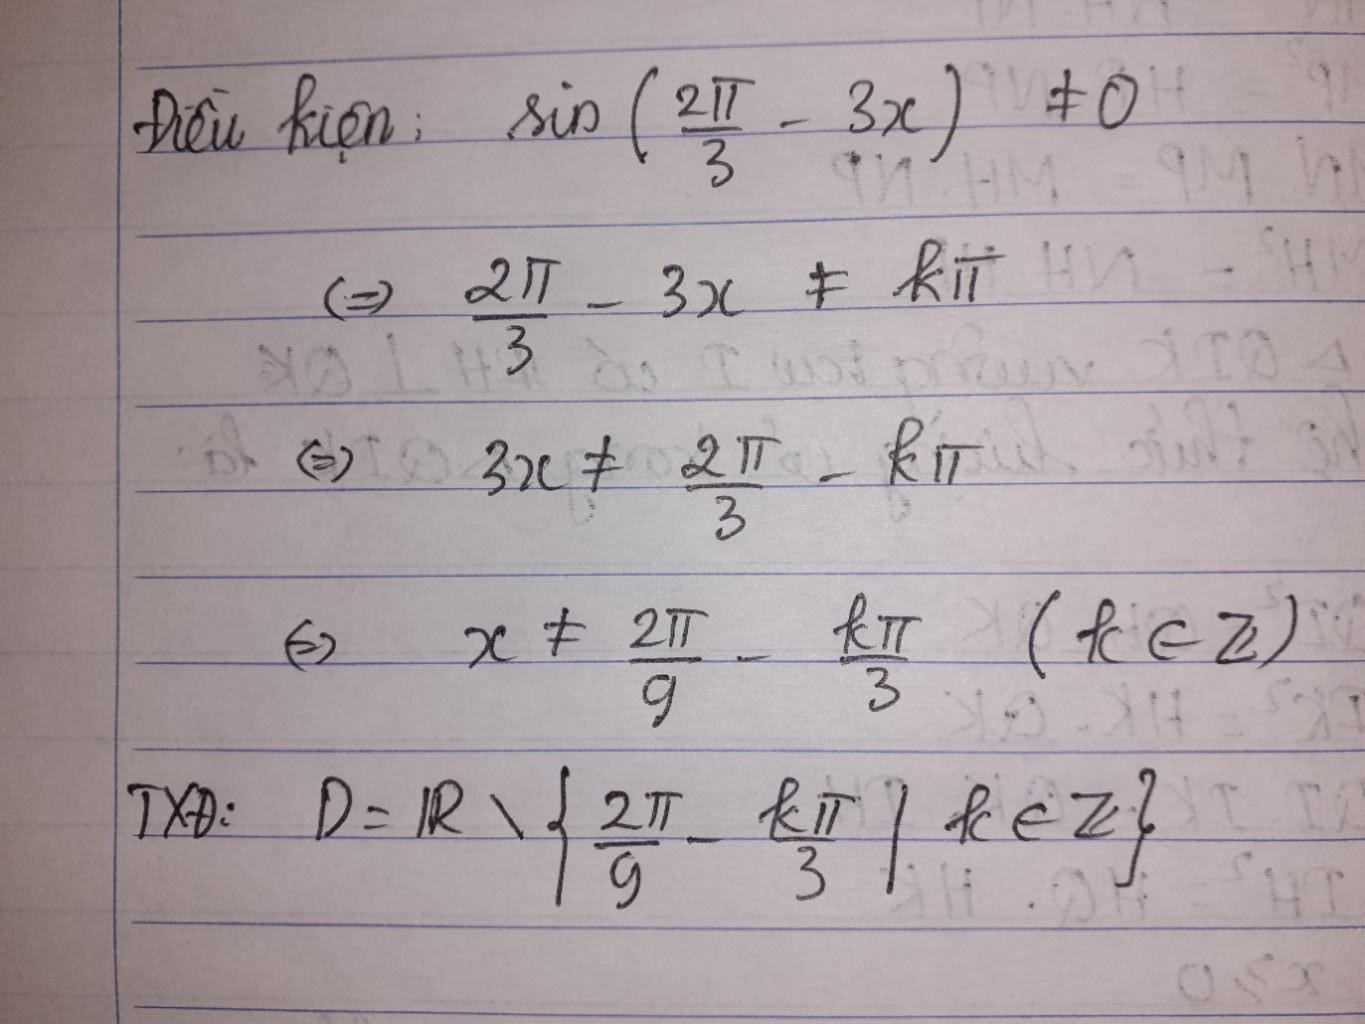 Điều kiện: sin (2π/3 - 3x) ≠ 0
(=) 2π/3 - 3x ≠ kπ
(=) 3x ≠ 2π/3 - kπ
(=) x ≠ 2π/9 - kπ/3 (k ∈ ℤ)
TXĐ: D = ℝ \ {2π/9 - kπ/3 | k ∈ ℤ}